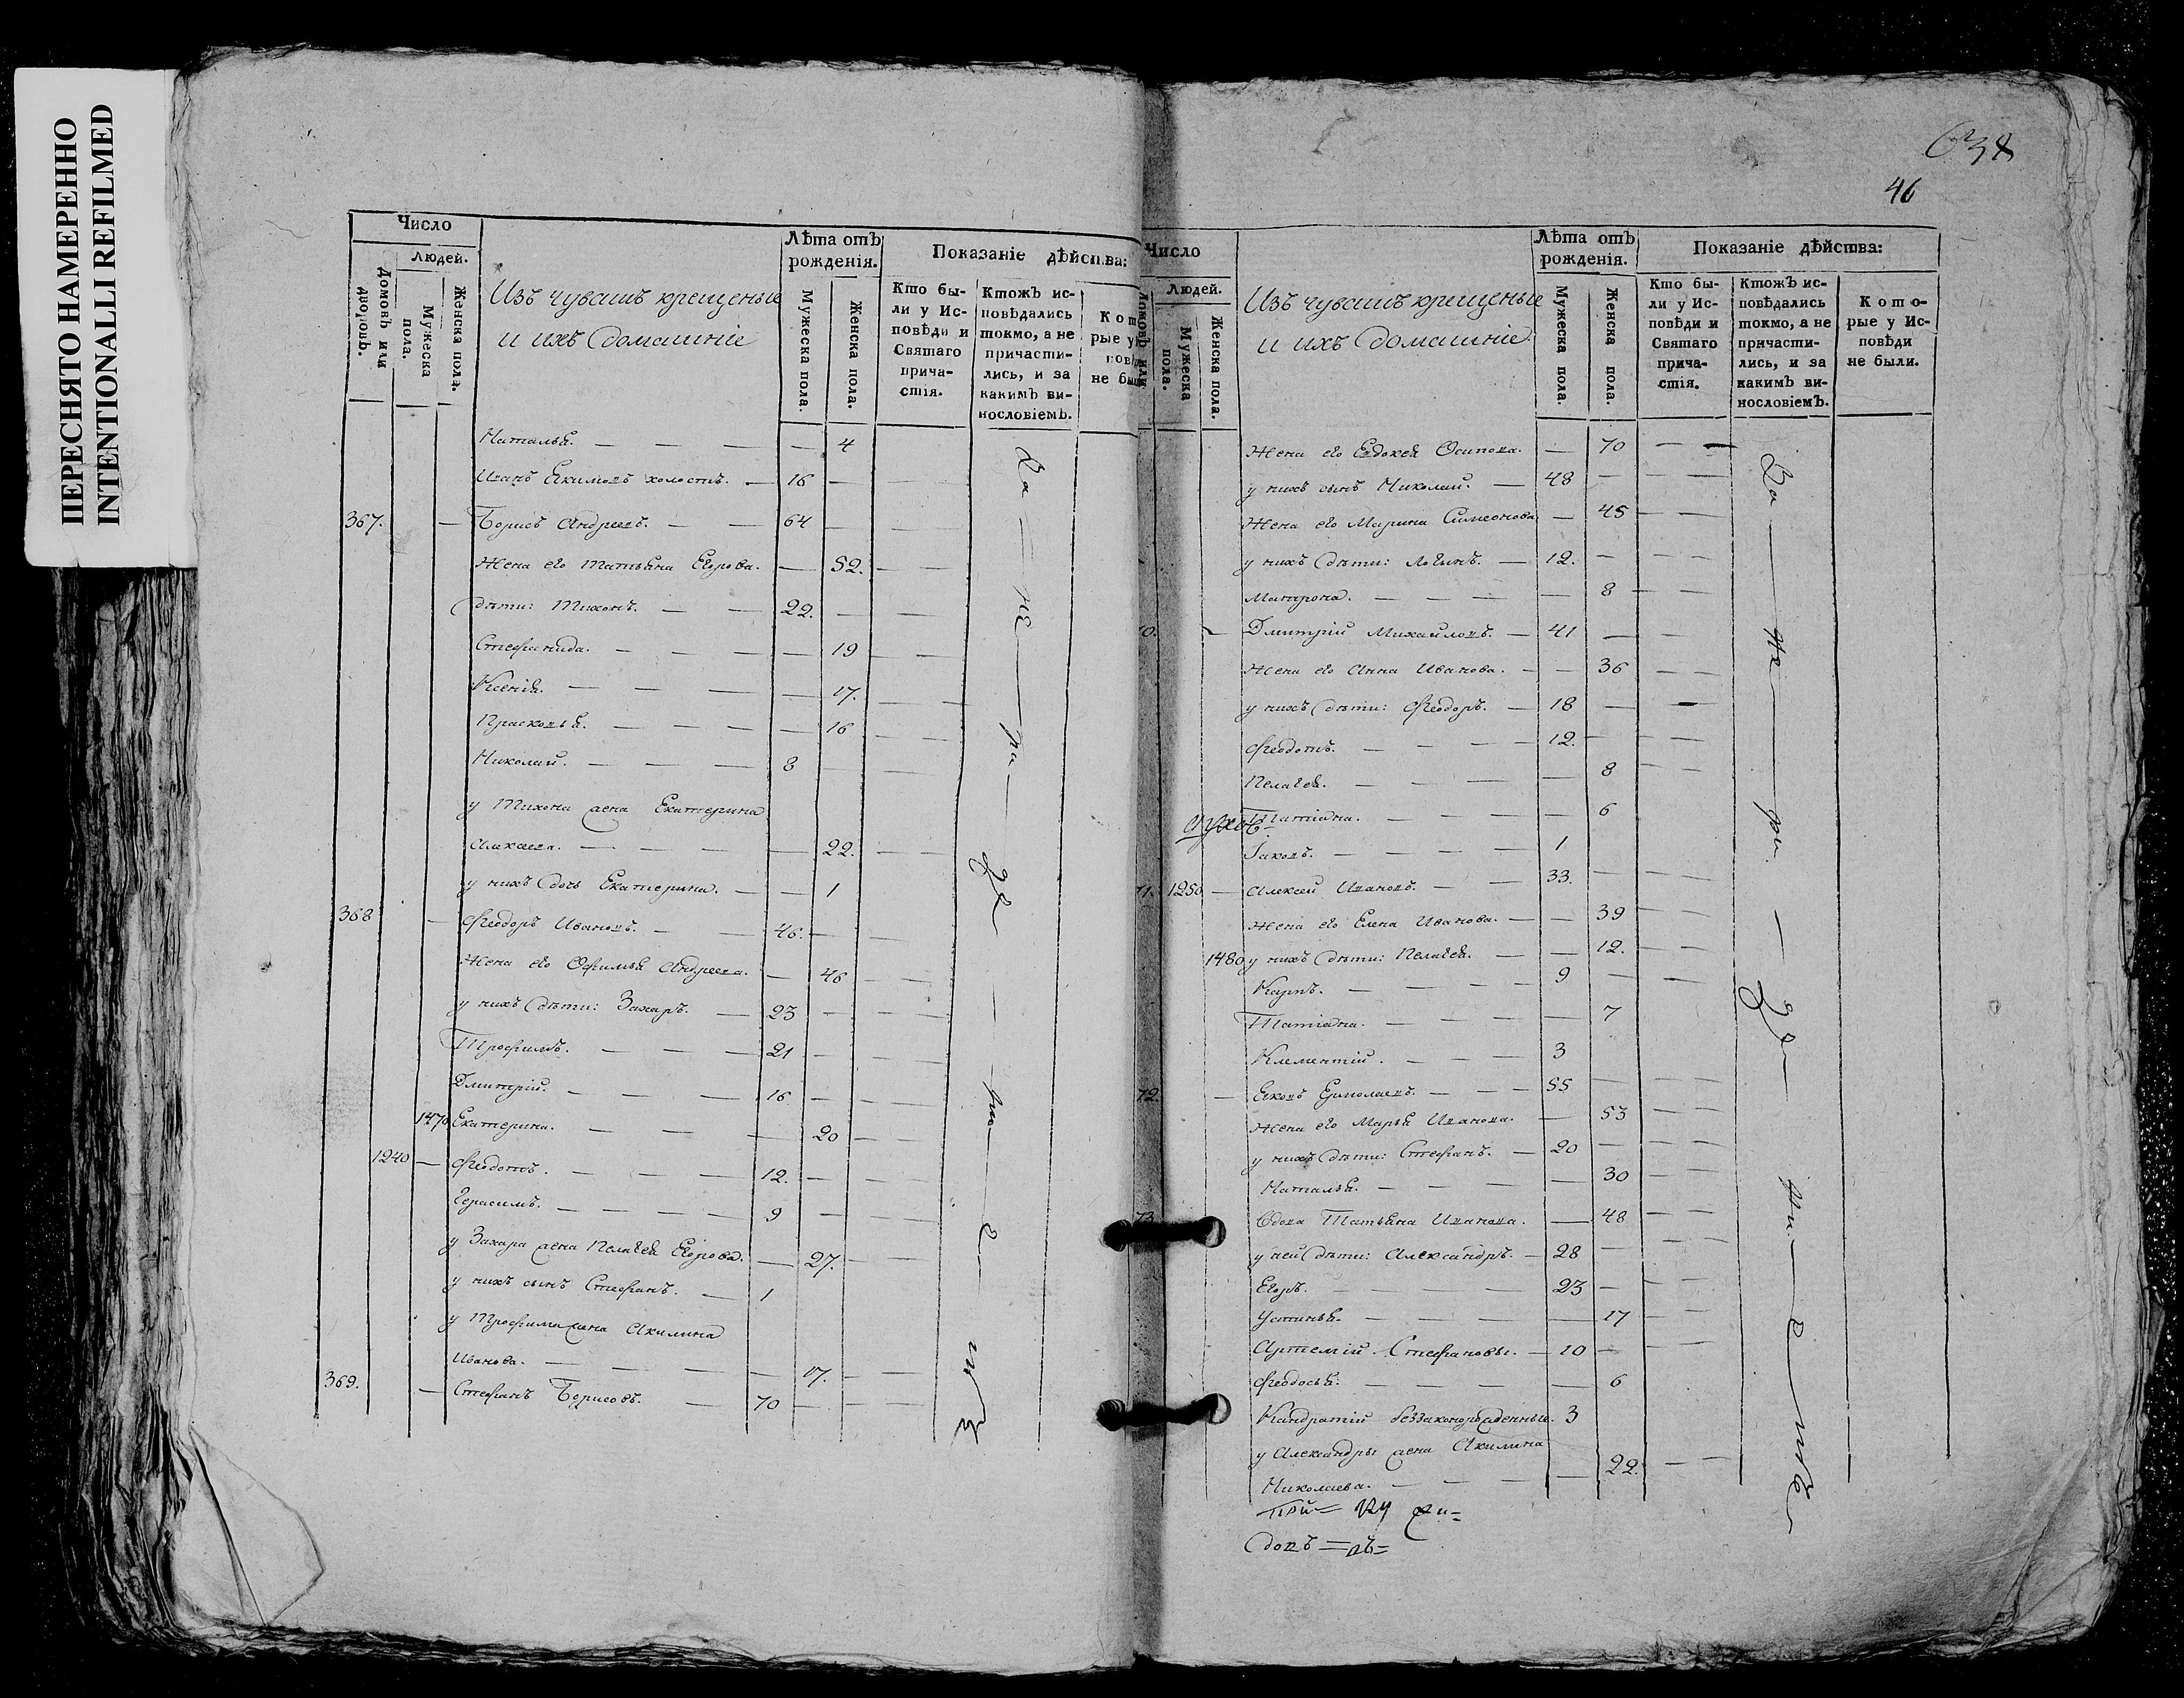 ПЕРЕСНЯТО НАМЕРЕННО
INTENTIONALLI REFILMED
Число
Людей.
Домовъ или дворовъ.
Мужеска пола.
Женска пола.
Изъ чувашъ крещеные
и ихъ домашніе
Лѣта отъ рожденія.
Мужеска пола.
Женска пола.
Показаніе дѣйства:
Кто бы-
ли у Ис-
повѣди и
Святаго
прича-
стія.
Ктожъ ис-
повѣдались
токмо, а не
причасти-
лись, и за
какимъ ви-
нословіемъ.
Наталья. — — — — 4
Иванъ Екимовъ холостъ. — 16 —
367. — Борисъ Андреевъ. — — 64 —
Жена его Татьяна Егорова. — 52.
дѣти: Тихонъ. — — 22. —
Стефанида. — — — — 19
Ксенія. — — — — 17.
Прасковья. — — — — 16
Николай. — — — 8
у Тихона жена Екатерина
Алексеева. — — — — 22.
у нихъ дочь Екатерина. — — 1
368 — Феодоръ Ивановъ. — — 46. —
Жена его Офимья Андреева. — 46
у нихъ дѣти: Захаръ. — 23 —
Трофимъ. — — — 21 —
Дмитрій. — — — 16 —
1470 Екатерина. — — — — 20
1240 — Феодотъ. — — — 12. —
Герасимъ. — — — — 9 —
у Захара жена Пелагея Егорова. — 27.
у нихъ сынъ Стефанъ. — 1
у Трофима жена Акилина
Иванова. — — — — 17.
369. — Стефанъ Борисовъ. — 70 —
638
46
Число
Людей.
Мужеска пола.
Женска пола.
Изъ чувашъ крещеные
и ихъ домашніе
Лѣта отъ рожденія.
Мужеска пола.
Женска пола.
Показаніе дѣйства:
Кто бы-
ли у Ис-
повѣди и
Святаго
прича-
стія.
Ктожъ ис-
повѣдались
токмо, а не
причасти-
лись, и за
какимъ ви-
нословіемъ.
Кото-
рые у Ис-
повѣди
не были.
Жена его Евдокея Осипова. — 70
у нихъ сынъ Николай. — 48 —
Жена его Марина Симеонова — 45
у нихъ дѣти: Логинъ. — 12. —
Матрона. — — — — 8
0. — Дмитрій Михайловъ. — 41 —
Жена его Анна Иванова. — — 36
у нихъ дѣти: Феодоръ. — 18 —
Феодотъ. — — — 12. —
Пелагея. — — — — 8
Татіана. — — — — 6
Іаковъ. — — — — 1
71. 1250 — Алексей Ивановъ. — — 33. —
Жена его Елена Иванова. — — 39
1480 у нихъ дѣти: Пелагея. — — 12.
Карпъ. — — — — 9 —
Татіана. — — — — 7
Клементій. — — — 3
72. — Ековъ Ермолаевъ. — — — 55 —
Жена его Марья Иванова. — 53
у нихъ дѣти: Стефанъ. — 20 —
Наталья. — — — — 30
73. Вдова Татьяна Иванова. — 48
у ней дѣти: Александръ. — 28 —
Егоръ. — — — — 23 —
Устинья. — — — — 17
Артемій Стефановы. — 10 —
Феодосья. — — — — 6
Кандратій беззаконорожденные. 3
у Александры жена Акилина
Николаева. — — — — 22.